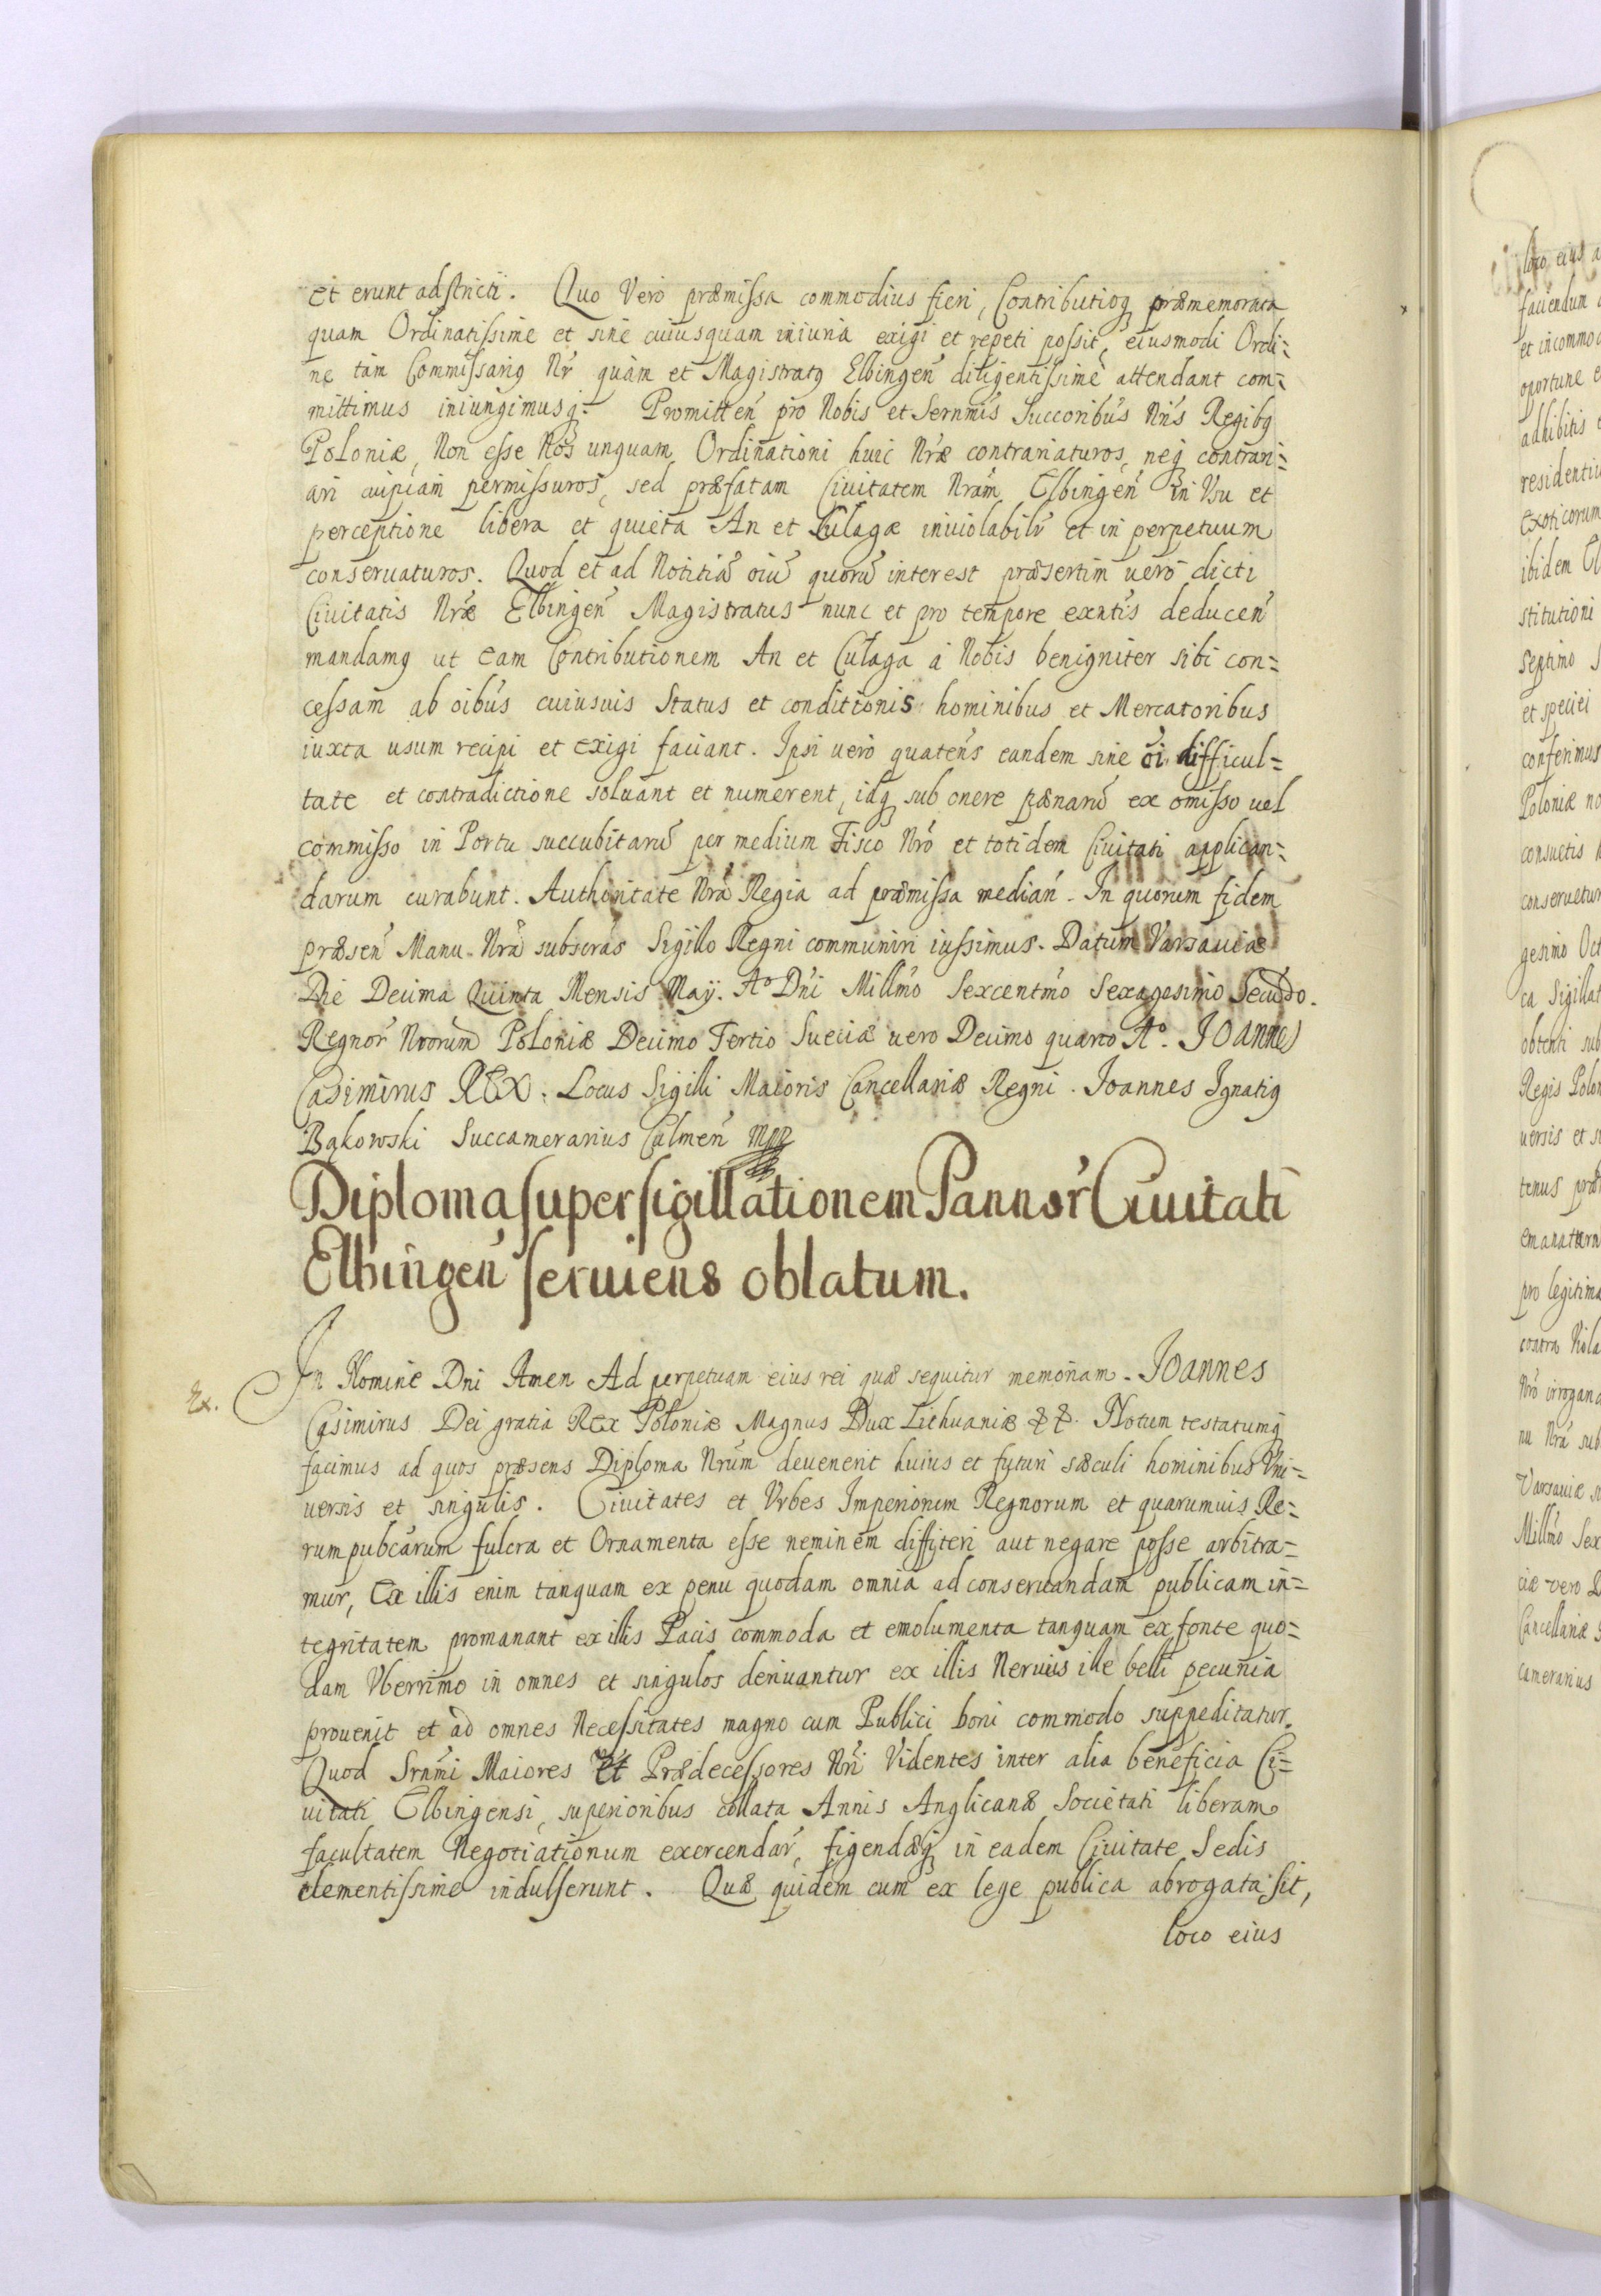 et erunt adstricti. Quo Vero præmissa commodius fieri, Contributioq præmemorata
quam Ordinatissime et sine cuiusquam iniuria exigi et repeti possit, eiusmodi Ordi=
ne tàm Commissariq Nr̃ quàm et Magistratq Elbingeñ diligentissimè attendant com=
mittimus iniungimusq. Promitteñ pro Nobis et Sernmis Succoribus Nris Regibq
Poloniæ, Non esse Nos unquam Ordinationi huic Nræ contrariaturos, neq contrari=
ari cuipiam permissuros, sed præfatam Ciuitatem Nram Elbingeñ in Vsu et
perceptione libera et quieta An et Culagæ inuiolabilr et in perpetuum
conseruaturos. Quod et ad Notitiã oiũ quorũ interest præsertim uerò dicti
Ciuitatis Nræ Elbingeñ Magistratus nunc et pro tempore exntis deduceñ
mandamq ut eam Contributionem An et Culaga à Nobis benigniter sibi con=
cessam ab oibus cuiusuis Status et conditionis hominibus et Mercatoribus
iuxta usum recipi et exigi faciant. Ipsi uerò quatens eandem sine oi difficul=
tate et contradictione soluant et numerent, idq sub onere pænarũ ex omisso uel
commisso in Portu succubitarũ per medium Fisco Nro et totidem Ciuitati applican=
darum curabunt. Authoritate Nra Regia ad præmissa mediañ. In quorum fidem
præseñ Manu Nra subscras Sigillo Regni communiri iussimus. Datum Varsauiæ
Die Decima Quinta Mensis Maÿ. Aº Dni Millmo Sexcentmo Sexagesimo Secũdo.
Regnor Nrorum Poloniæ Decimo Tertio Sueciæ uero Decimo quarto Aº. Joannes
Casimirus REX. Locus Sigilli Maioris Cancellariæ Regni. Joannes Ignatiq
Bąkowski Succamerarius Culmeñ mpp
Diploma super sigillationem Pannor Ciuitati
Elbingeñ seruiens oblatum.
Ex. In Nomine Dni Amen Ad perpetuam eius rei quæ sequitur memoriam. Joannes
Casimirus Dei gratia Rex Poloniæ Magnus Dux Lithuaniæ & &. Notum testatumq
facimus ad quos præsens Diploma Nrum deuenerit huius et futuri sæculi hominibus Vni=
uersis et singulis. Ciuitates et Vrbes Imperiorum Regnorum et quarumuis Re=
rumpubcarum fulcra et Ornamenta esse neminem diffiteri aut negare posse arbitra=
mur, Ex illis enim tanquam ex penu quodam omnia ad conseruandam publicam in=
tegritatem promanant ex illis Pacis commoda et emolumenta tanquam ex fonte quo=
dam Vberrimo in omnes et singulos deriuantur ex illis Neruus ille belli pecunia
prouenit et ad omnes Necessitates magno cum Publici boni commodo suppeditatur.
Quod Srnmi Maiores Et Prædecessores Nri Videntes inter alia beneficia Ci=
uitati Elbingensi, superioribus collata Annis Anglicanæ Societati liberam
facultatem Negotiationum exercendar, figendæq in eadem Ciuitate Sedis
clementissime indulserunt. Quæ quidem cum ex lege publica abrogata sit,
loco eius